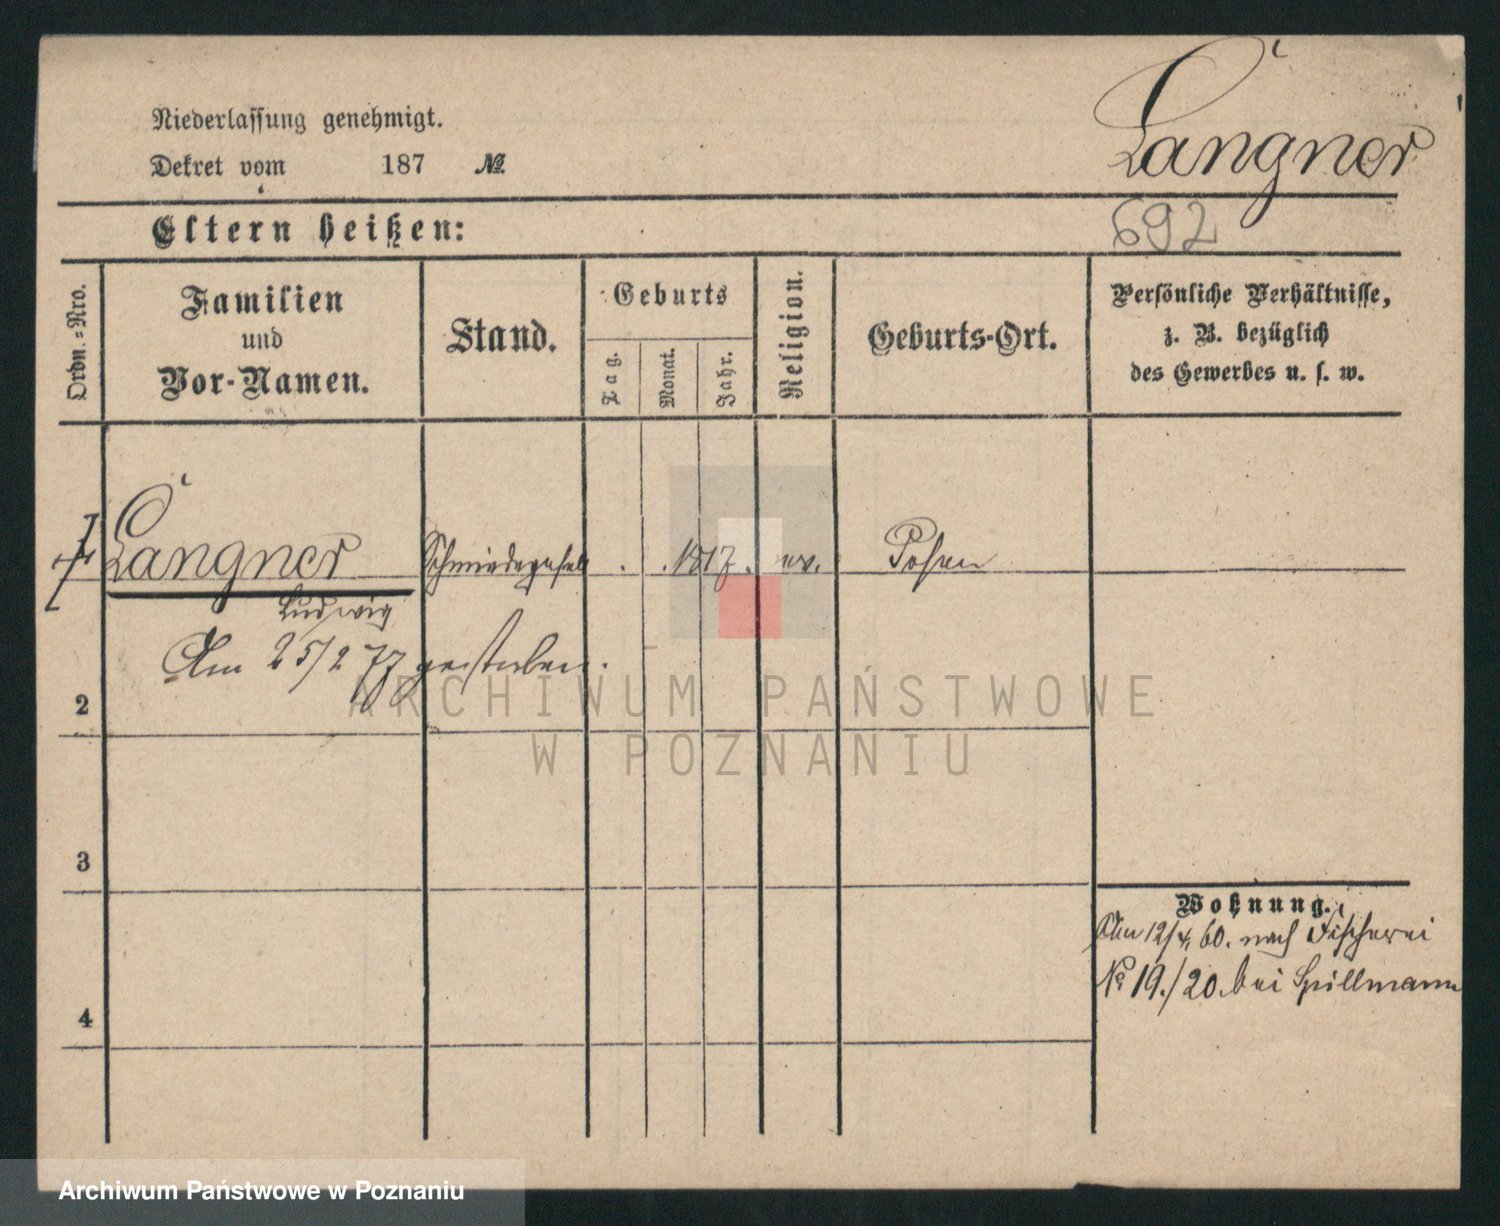 Niederlassung genehmigt.
Dekret vom 187 №
Langner
692
Eltern heißen:
Ordn.-Nro.
Familien
und
Vor-Namen.
Stand.
Geburts
Tag.
Monat.
Jahr.
Religion.
Geburts-Ort.
Persönliche Verhältnisse,
z. B. bezüglich
des Gewerbes u. s. w.
Langner Schmiedegesell . . 1817. ev. Posen
Ludwig
Am 25/2 77 gestorben.
2
3
4
Wohnung.
Am 12/4 60. nach Fischerei
No 19./20. bei Spillmann
ARCHIWUM PAŃSTWOWE
W POZNANIU
Archiwum Państwowe w Poznaniu